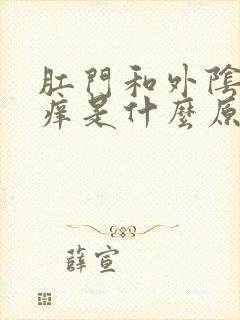 肛門和外陰
痒是什麼原
薛宣